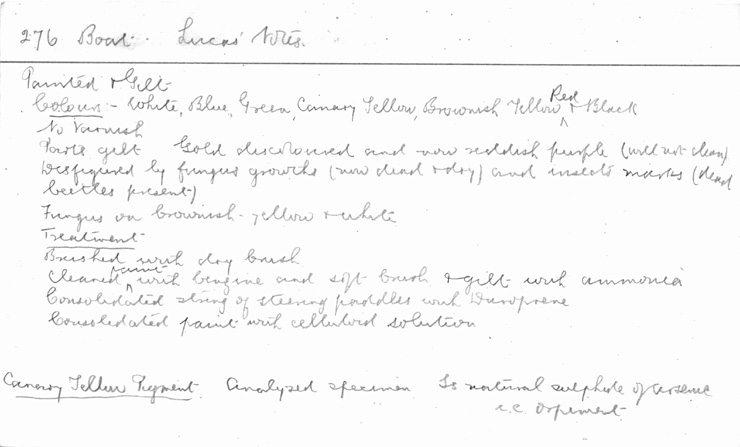 276 Boat. Lucas' Notes.
Painted & Gilt
Colours - White, Blue, Green, Canary Yellow, Brownish Yellow, Red & Black
No Varnish
Parts gilt Gold discoloured and now reddish purple (will not clean)
Disfigured by fungus growths (now dead & dry) and insects marks (dead
beetles present)
Fungus on brownish-yellow & white
Treatment
Brushed with dry brush
Cleaned paint with benzine and soft brush & gilt with ammonia
Consolidated string of steering paddles with Duroprene
Consolidated paint with celluloid solution
Canary Yellow Pigment. Analysed specimen Is natural sulphide of arsenic
i.e. Orpiment